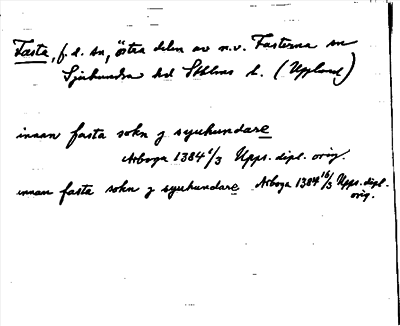 Fasta, f. d. sn, östra delen av n.v. Fasterna sn
Sjuhundra hd Sthlms l. (Uppland)
innan fasta sokn j syuhundare
Arboga 1384 1/3 Upps. dipl. orig.
innan fasta sokn j syuhundare Arboga 1384 16/3 Upps. dipl.
orig.